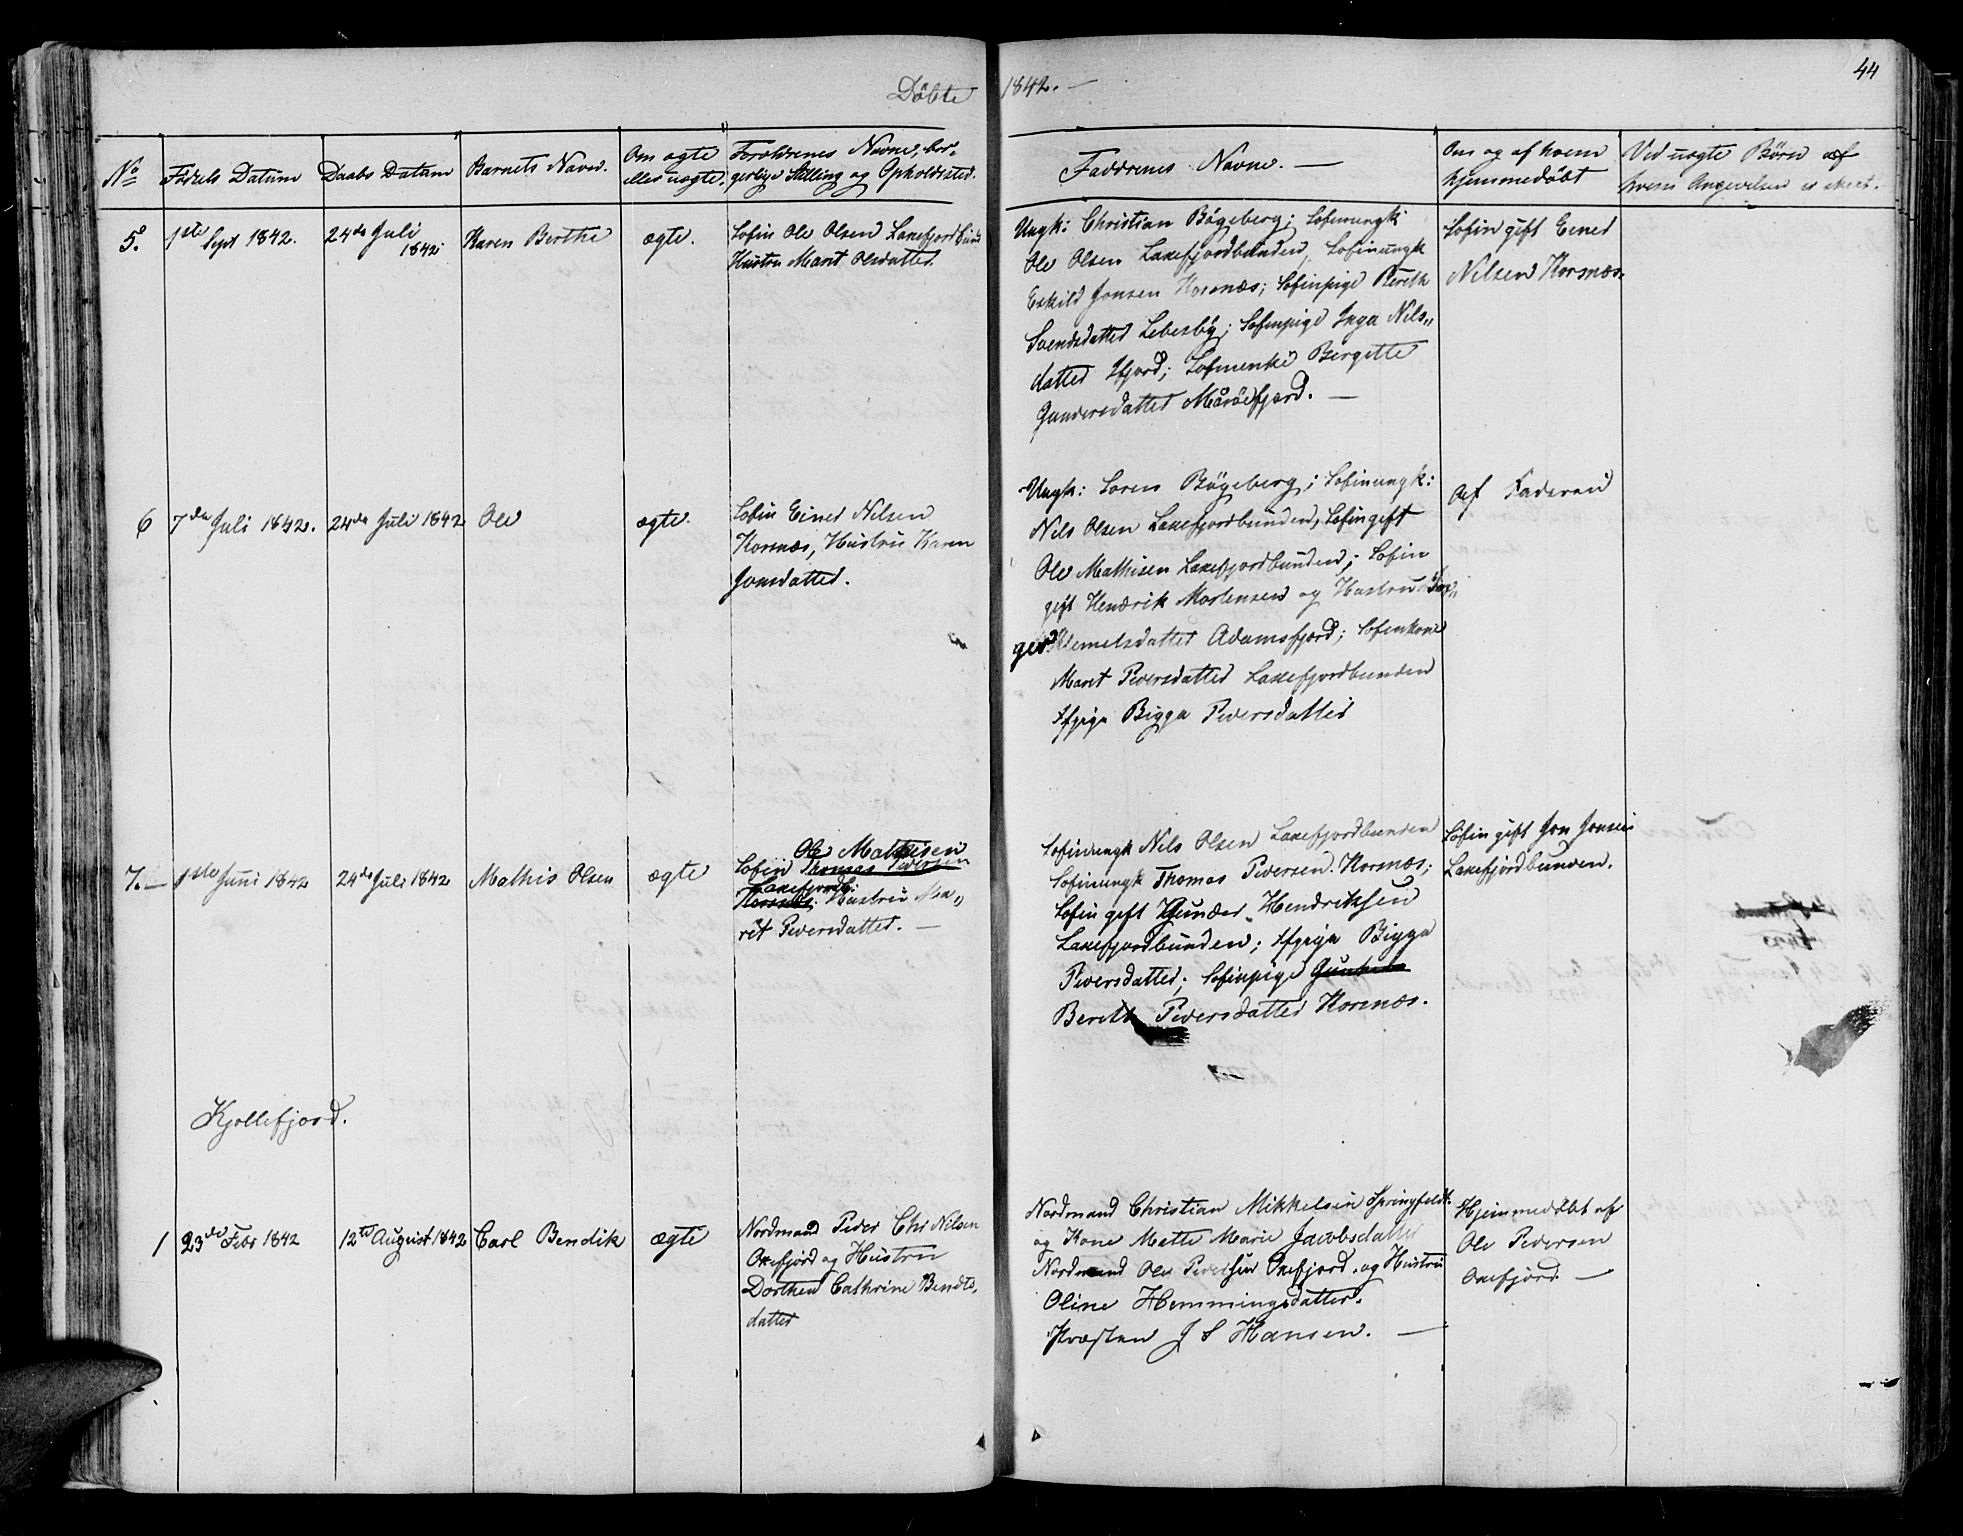 Döbte 1842. —
44
No
Fødsels Datum
Daabs Datum
Barnets Navn.
Om ægte
eller uægte.
Foreldrenes Navne, bor-
gerlige Stilling og Opholdssted.
Faddrenes Navne. —
Om og af hvem
hjemmedöbt
Ved uægte Börn af
hvem Angivelsen er skeet.
5.
1ste Sept 1842.
24de Juli
1842
Karen Berthe
ægte.
Söfin Ole Olsen Laxefjordbund
Hustru Marit Olsdatter
Ungk: Christian Bögeberg; Söfinungk
Ole Olsen Laxefjordbunden, Söfinungk
Eskild Jonsen Korsnæs; Söfinpige Bereth
Svendsdatter Lebesby; Söfinpige Inga Nils„
datter Ifjord; Söfinenke Bergette
Gundersdatter Mårøefjord. —
Söfin gift Einer
Nilsen Korsnæs.
6
7de Juli 1842.
24de Juli 1842
Ole
ægte.
Söfin Einer Nilsen
Korsnæs, Hustru Karen
Jonsdatter.
Ungk: Sören Bögeberg; Söfinungk:
Nils Olsen Laxefjordbunden, Söfin gift
Ole Mathisen Laxefjordbunden; Söfin
gift Henderik Mortensen og Hustru
Klemetsdatter Adamsfjord; Söfinkone
Maret Pedersdatter Laxefjordbunden
Sfpige Bigga Pedersdatter
Af Faderen
7. —
1ste Juni 1842
24de Juli 1842
Mathis Olsen
ægte
Ole Mathisen
Söfin Thomas Pedersen
Laxefjordb:
Korsnæs. Hustru Ma„
rit Pedersdatter. —
Söfinungk Nils Olsen Laxefjordbunden
Söfinungk Thomas Pedersen Korsnæs;
Söfin gift Gunder Hendriksen
Laxefjordbunden; Sfpige Bigga
Pedersdatter; Söfinpige
Bereth Pedersdatter Korsnæs.
Söfin gift Jon Jonsen
Laxefjordbunden.
Kjollefjord.
1
23de Febr 1842
12te August 1842
Carl Bendik
ægte
Nordmand Peder Chr Nilsen
Oxefjord og Hustru
Dorthea Cathrine Bendts-
datter
Nordmand Christian Mikkelsen Springfeldt
og Kone Mette Marie Jacobsdatter
Nordmand Ole Pedersen Oxefjord. og Hustru
Oline Hemmingsdatter.
Præsten J S Hansen. —
Hjemmedöbt af
Ole Pedersen
Oxefjord. —